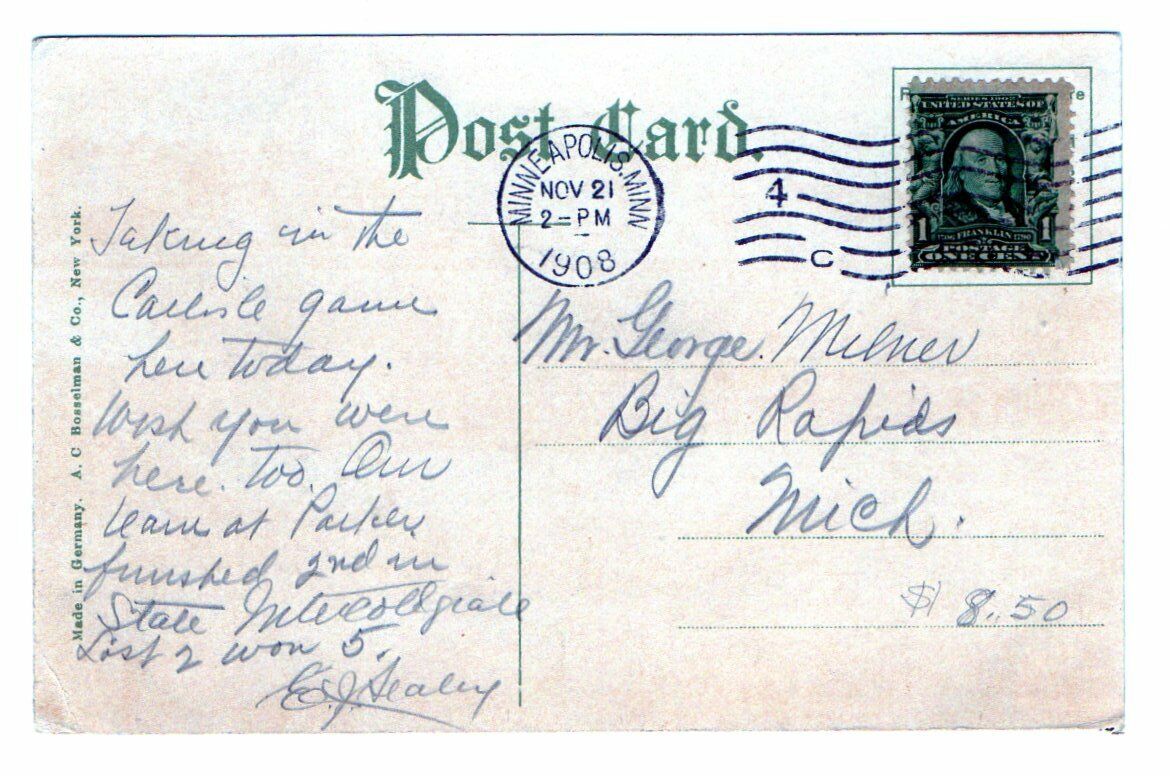 Post Card.
MINNEAPOLIS, MINN
NOV 21
2=PM
1908
4
C
SERIES 1902
UNITED STATES OF
AMERICA
1 FRANKLIN 1
POSTAGE
ONE CENT
Made in Germany. A. C Bosselman & Co., New York.
Taking in the
Carlisle game
here today.
Wish you were
here. too. Our
team at Parker
finished 2nd in
State Intercollegiate
Lost 2 won 5.
Mr. George. Milner
Big Rapids
Mich.
$ 8.50